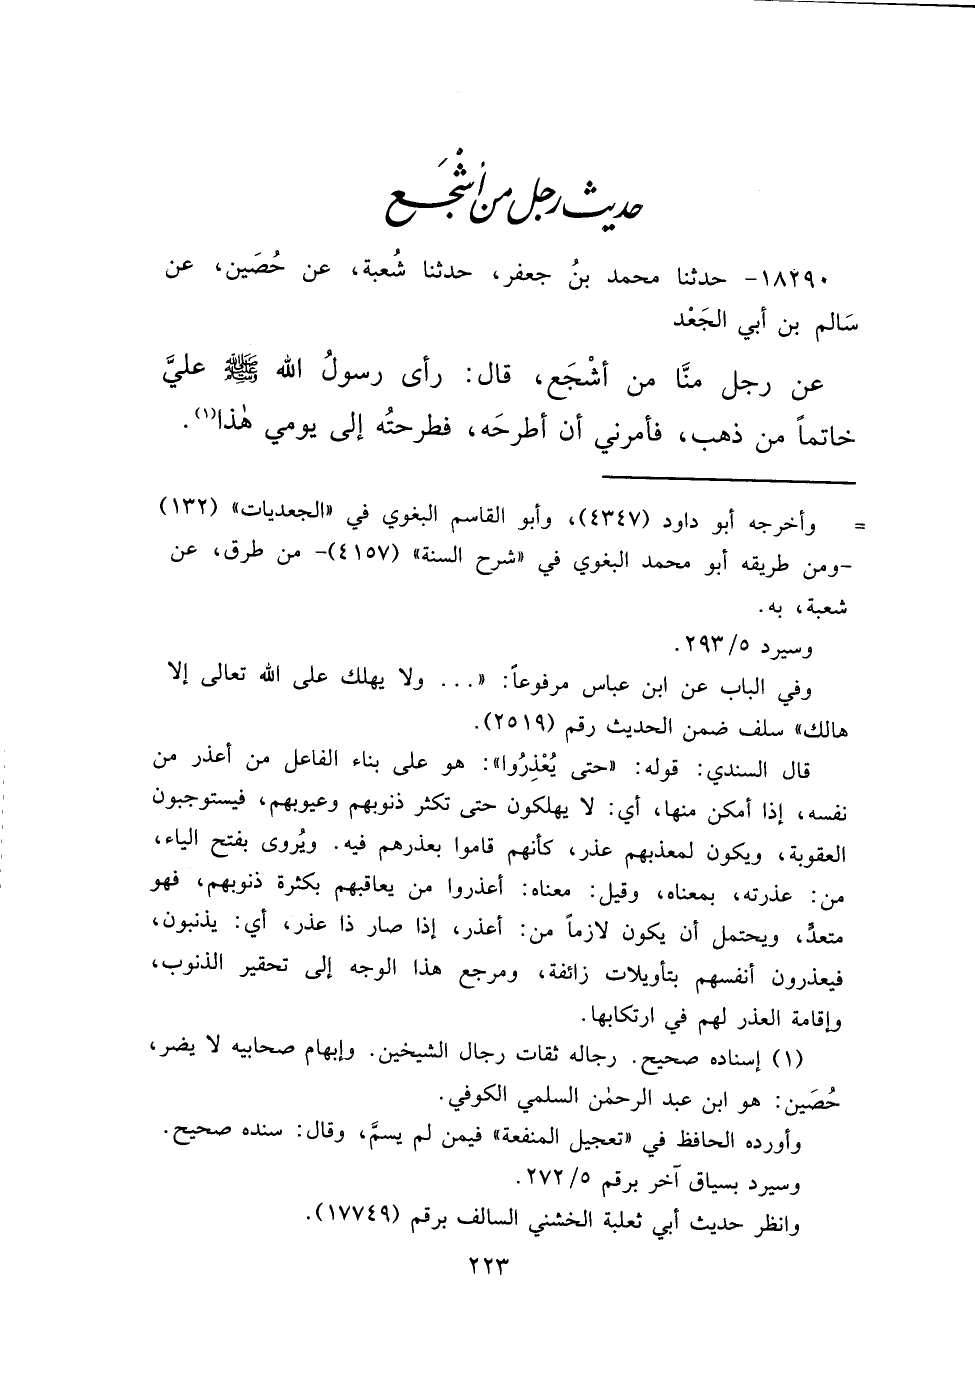 حديث رجل من أشْجَع
١٨٢٩٠- حدثنا محمد بنُ جعفر، حدثنا شُعبة، عن حُصَين، عن
سَالم بن أبي الجَعْد
عن رجل منَّا من أشْجَع، قال: رأى رسولُ الله ﷺ عليَّ
خاتماً من ذهب، فأمرني أن أطرحَه، فطرحتُه إلى يومي هٰذا(١).
= وأخرجه أبو داود (٤٣٤٧)، وأبو القاسم البغوي في «الجعديات» (١٣٢)
-ومن طريقه أبو محمد البغوي في «شرح السنة» (٤١٥٧)- من طرق، عن
شعبة، به.
وسيرد ٢٩٣/٥.
وفي الباب عن ابن عباس مرفوعاً: «... ولا يهلك على الله تعالى إلا
هالك» سلف ضمن الحديث رقم (٢٥١٩).
قال السندي: قوله: «حتى يُعْذِرُوا»: هو على بناء الفاعل من أعذر من
نفسه، إذا أمكن منها، أي: لا يهلكون حتى تكثر ذنوبهم وعيوبهم، فيستوجبون
العقوبة، ويكون لمعذبهم عذر، كأنهم قاموا بعذرهم فيه. ويُروى بفتح الياء،
من: عذرته، بمعناه، وقيل: معناه: أعذروا من يعاقبهم بكثرة ذنوبهم، فهو
متعدٍّ، ويحتمل أن يكون لازماً من: أعذر، إذا صار ذا عذر، أي: يذنبون،
فيعذرون أنفسهم بتأويلات زائفة، ومرجع هذا الوجه إلى تحقير الذنوب،
وإقامة العذر لهم في ارتكابها.
(١) إسناده صحيح. رجاله ثقات رجال الشيخين. وإبهام صحابيه لا يضر،
حُصَين: هو ابن عبد الرحمٰن السلمي الكوفي.
وأورده الحافظ في «تعجيل المنفعة» فيمن لم يسمَّ، وقال: سنده صحيح.
وسيرد بسياق آخر برقم ٢٧٢/٥.
وانظر حديث أبي ثعلبة الخشني السالف برقم (١٧٧٤٩).
٢٢٣